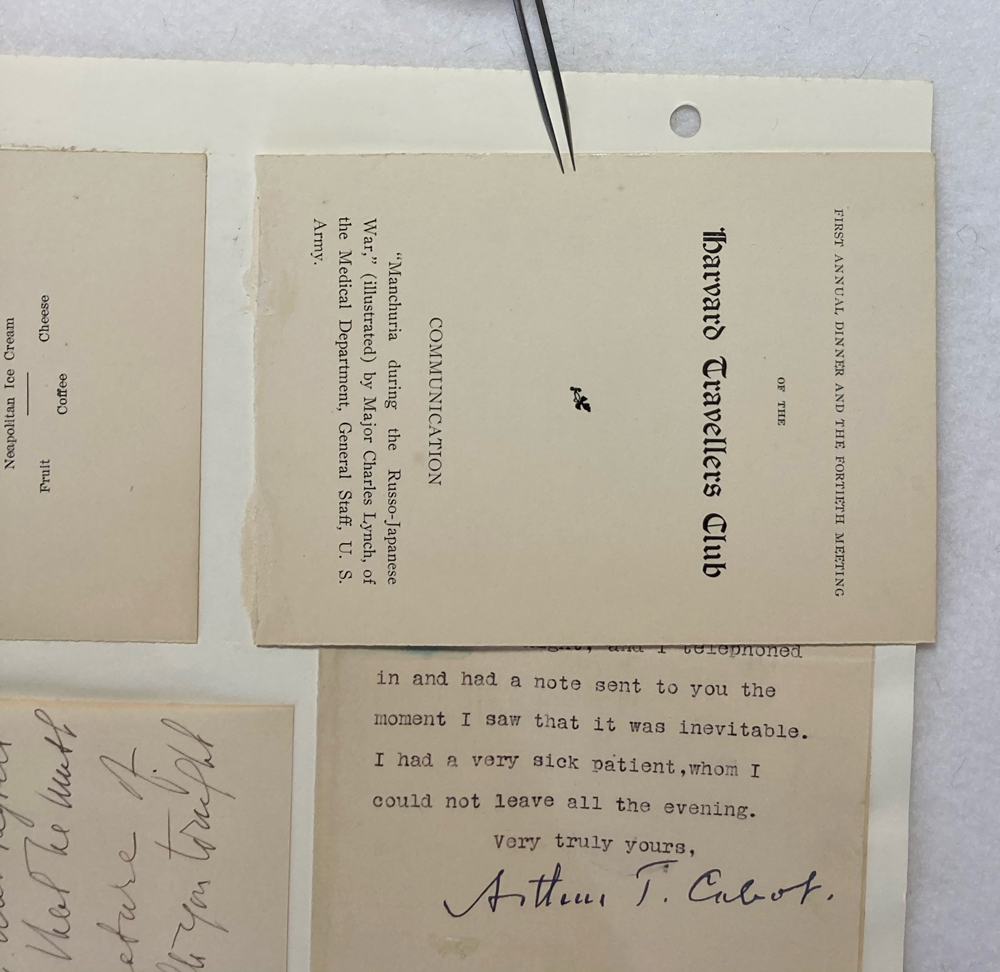 FIRST ANNUAL DINNER AND THE FORTIETH MEETING
OF THE
Harvard Travellers Club
COMMUNICATION
“Manchuria during the Russo-Japanese
War,” (illustrated) by Major Charles Lynch, of
the Medical Department, General Staff, U. S.
Army.
Neapolitan Ice Cream
Fruit Cheese
Coffee
and I telephoned
in and had a note sent to you the
moment I saw that it was inevitable.
I had a very sick patient,whom I
could not leave all the evening.
Very truly yours,
Arthur T. Cabot.
that he must
of
you tonight